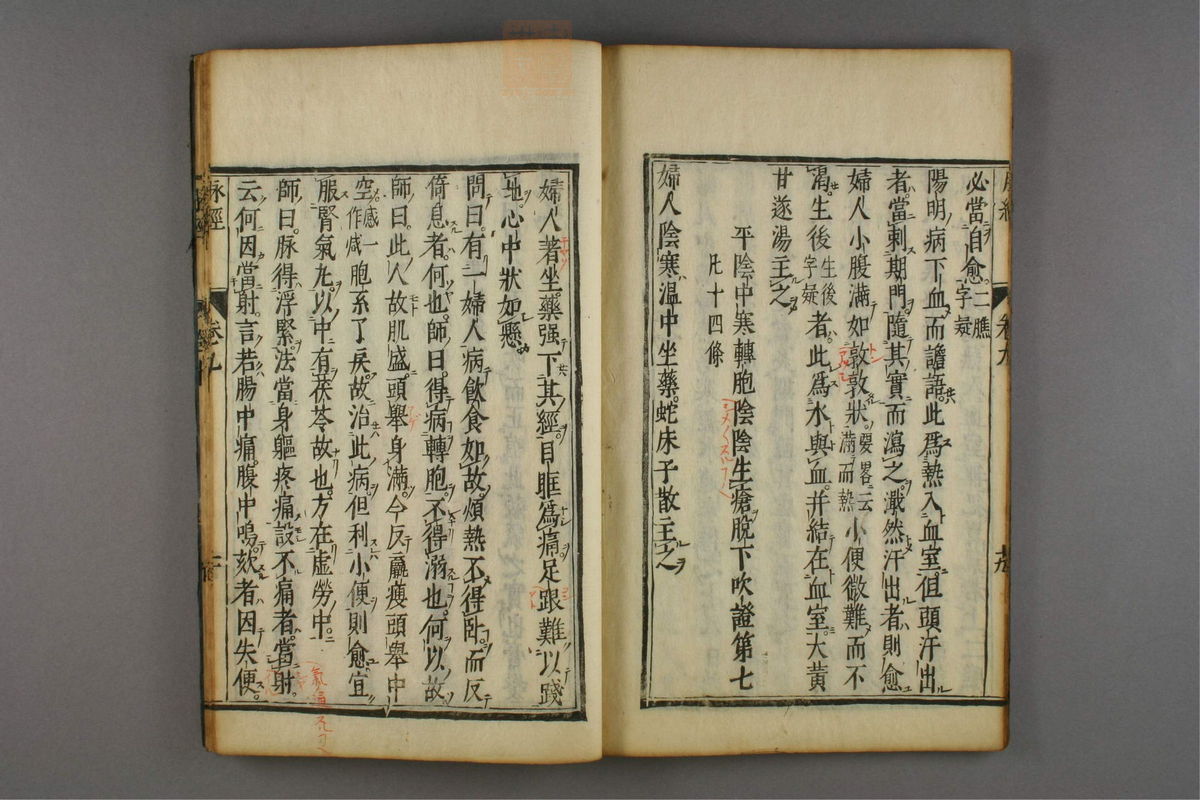 必當自愈二膲字疑
陽明病下血而譫語此爲熱入血室但頭汗出
者當刺期門隨其實而瀉之濈然汗出者則愈
婦人小腹滿如敦敦狀要畧云滿而熱小便微難而不
渴生後生後字疑者此爲水與血并結在血室大黃
甘遂湯主之
平陰中寒轉胞陰陰生瘡脫下吹證第七
凡十四條
婦人陰寒温中坐藥蛇床子散主之
婦人著坐藥强下其經目眶爲痛足跟難以踐
地心中狀如懸
問曰有一婦人病飲食如故煩熱不得臥而反
倚息者何也師曰得病轉胞不得溺也何以故
師曰此人故肌盛頭舉身滿今反羸瘦頭舉中
空感感一作減胞系了戾故治此病但利小便則愈宜
服腎氣丸以中有茯苓故也方在虛勞中
師曰脉得浮緊法當身軀疼痛設不痛者當射
云何因當射言若腸中痛腹中鳴欬者因失便
脉經
卷九